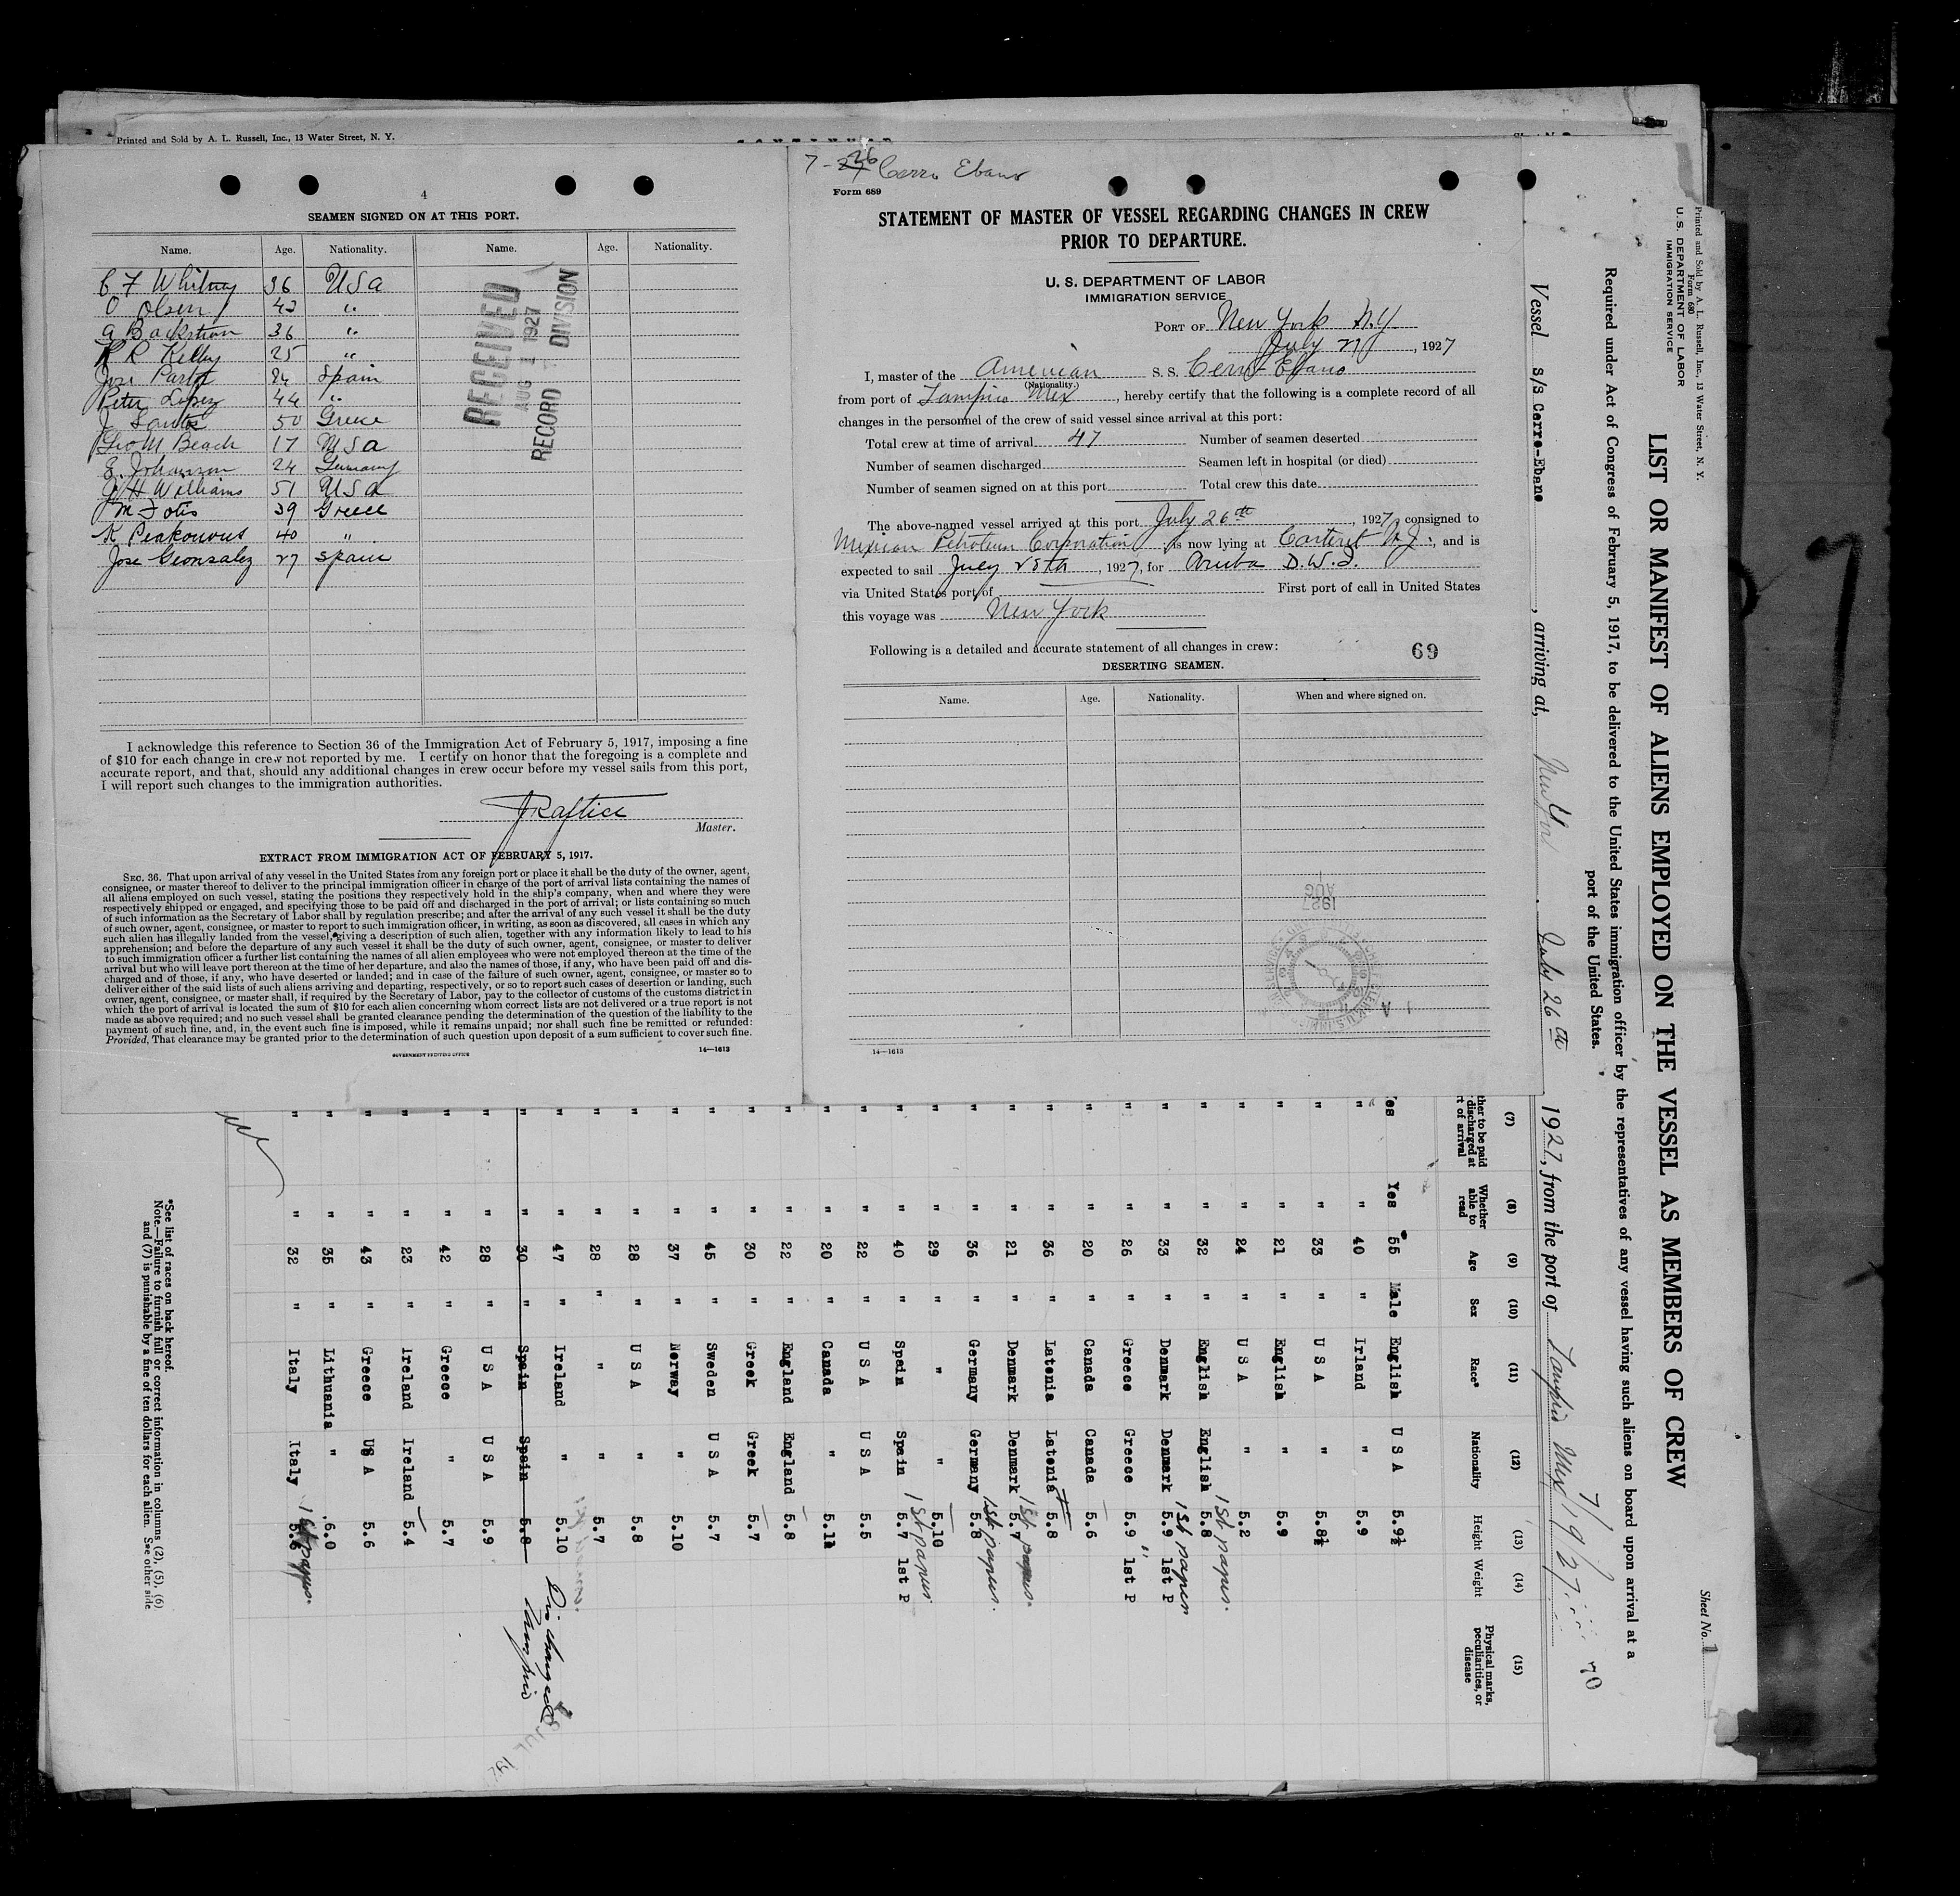 Printed and Sold by A. L. Russell, Inc., 13 Water Street, N. Y.
4
SEAMEN SIGNED ON AT THIS PORT.
Name. Age. Nationality. Name. Age. Nationality.
C F Whitney 36 USA
O Olsen 43 "
G Backstrom 36 "
R R Kelly 25 "
Jose 24 Spain
Peter Lopez 44 "
J Santos 50 Greece
Geo M Beach 17 USA
E Johanson 24 Germany
J H Williams 51 USA
M Fotis 39 Greece
K 40 "
Jose Gonsalez 27 Spain
RECEIVED
AUG 1 1927
RECORD DIVISION
I acknowledge this reference to Section 36 of the Immigration Act of February 5, 1917, imposing a fine
of $10 for each change in crew not reported by me. I certify on honor that the foregoing is a complete and
accurate report, and that, should any additional changes in crew occur before my vessel sails from this port,
I will report such changes to the immigration authorities.
Master.
EXTRACT FROM IMMIGRATION ACT OF FEBRUARY 5, 1917.
SEC. 36. That upon arrival of any vessel in the United States from any foreign port or place it shall be the duty of the owner, agent,
consignee, or master thereof to deliver to the principal immigration officer in charge of the port of arrival lists containing the names of
all aliens employed on such vessel, stating the positions they respectively hold in the ship's company, when and where they were
respectively shipped or engaged, and specifying those to be paid off and discharged in the port of arrival; or lists containing so much
of such information as the Secretary of Labor shall by regulation prescribe; and after the arrival of any such vessel it shall be the duty
of such owner, agent, consignee, or master to report to such immigration officer, in writing, as soon as discovered, all cases in which any
such alien has illegally landed from the vessel, giving a description of such alien, together with any information likely to lead to his
apprehension; and before the departure of any such vessel it shall be the duty of such owner, agent, consignee, or master to deliver
to such immigration officer a further list containing the names of all alien employees who were not employed thereon at the time of the
arrival but who will leave port thereon at the time of her departure, and also the names of those, if any, who have been paid off and dis-
charged and of those, if any, who have deserted or landed; and in case of the failure of such owner, agent, consignee, or master so to
deliver either of the said lists of such aliens arriving and departing, respectively, or so to report such cases of desertion or landing, such
owner, agent, consignee, or master shall, if required by the Secretary of Labor, pay to the collector of customs of the customs district in
which the port of arrival is located the sum of $10 for each alien concerning whom correct lists are not delivered or a true report is not
made as above required; and no such vessel shall be granted clearance pending the determination of the question of the liability to the
payment of such fine, and, in the event such fine is imposed, while it remains unpaid; nor shall such fine be remitted or refunded:
Provided, That clearance may be granted prior to the determination of such question upon deposit of a sum sufficient to cover such fine.
GOVERNMENT PRINTING OFFICE
14—1613
7-26 Cerro Ebano
Form 689
STATEMENT OF MASTER OF VESSEL REGARDING CHANGES IN CREW
PRIOR TO DEPARTURE.
U. S. DEPARTMENT OF LABOR
IMMIGRATION SERVICE
PORT OF New York N.Y.
July 27, 1927
I, master of the American S. S. Cerro Ebano
(Nationality.)
from port of Tampico Mex, hereby certify that the following is a complete record of all
changes in the personnel of the crew of said vessel since arrival at this port:
Total crew at time of arrival 47 Number of seamen deserted
Number of seamen discharged Seamen left in hospital (or died)
Number of seamen signed on at this port Total crew this date
The above-named vessel arrived at this port July 26th, 1927, consigned to
Mexican Petroleum Corporation; is now lying at Carteret N.J., and is
expected to sail July 28th, 1927, for Aruba D.W.I.
via United States port of First port of call in United States
this voyage was New York
Following is a detailed and accurate statement of all changes in crew:
69
DESERTING SEAMEN.
Name. Age. Nationality. When and where signed on.
AUG 1 1927
14—1613
Printed and Sold by A. L. Russell, Inc., 13 Water Street, N. Y.
Form 680
U. S. DEPARTMENT OF LABOR
IMMIGRATION SERVICE
Sheet No. 1
LIST OR MANIFEST OF ALIENS EMPLOYED ON THE VESSEL AS MEMBERS OF CREW
Required under Act of Congress of February 5, 1917, to be delivered to the United States immigration officer by the representatives of any vessel having such aliens on board upon arrival at a
port of the United States.
70
Vessel S/S Cerro-Ebano, arriving at, New York, July 26th 1927, from the port of Tampico Mex 7/19/27
(7) (8) (9) (10) (11) (12) (13) (14) (15)
ther to be paid discharged at rt of arrival Whether able to read Age Sex Race* Nationality Height Weight Physical marks, peculiarities, or disease
es Yes 55 Male English U S A 5.9½
" " 40 " Irland " 5.9
" " 33 " U S A " 5.8½
" " 21 " English " 5.9
" " 24 " U S A " 5.2
" " 32 " English English 5.8 1st papers.
" " 33 " Denmark Denmark 5.9 1st P 1st papers
" " 26 " Greece Greece 5.9 1st P "
" " 20 " Canada Canada 5.6
" " 36 " Latonia Latonia 5.8
" " 21 " Denmark Denmark 5.7 1st papers.
" " 36 " Germany Germany 5.8 1st papers.
" " 29 " " " 5.10
" " 40 " Spain Spain 5.7 1st P 1st papers
" " 22 " U S A U S A 5.5
" " 20 " Canada " 5.11½
" " 22 " England England 5.8
" " 30 " Greek Greek 5.7
" " 45 " Sweden U S A 5.7
" " 37 " Norway " 5.10
" " 28 " U S A " 5.8
" " 28 " " " 5.7
" " 47 " Ireland " 5.10
" " 30 " Spain Spain 5.8 Discharged Tampico
" " 28 " U S A U S A 5.9
" " 42 " Greece " 5.7
" " 23 " Ireland Ireland 5.4
" " 43 " Greece U S A 5.6
" " 35 " Lithuania " 6.0
" " 32 " Italy Italy 5.6 1st papers.
*See list of races on back hereof.
Note.—Failure to furnish full or correct information in columns (2), (5), (6)
and (7) is punishable by a fine of ten dollars for each alien. See other side